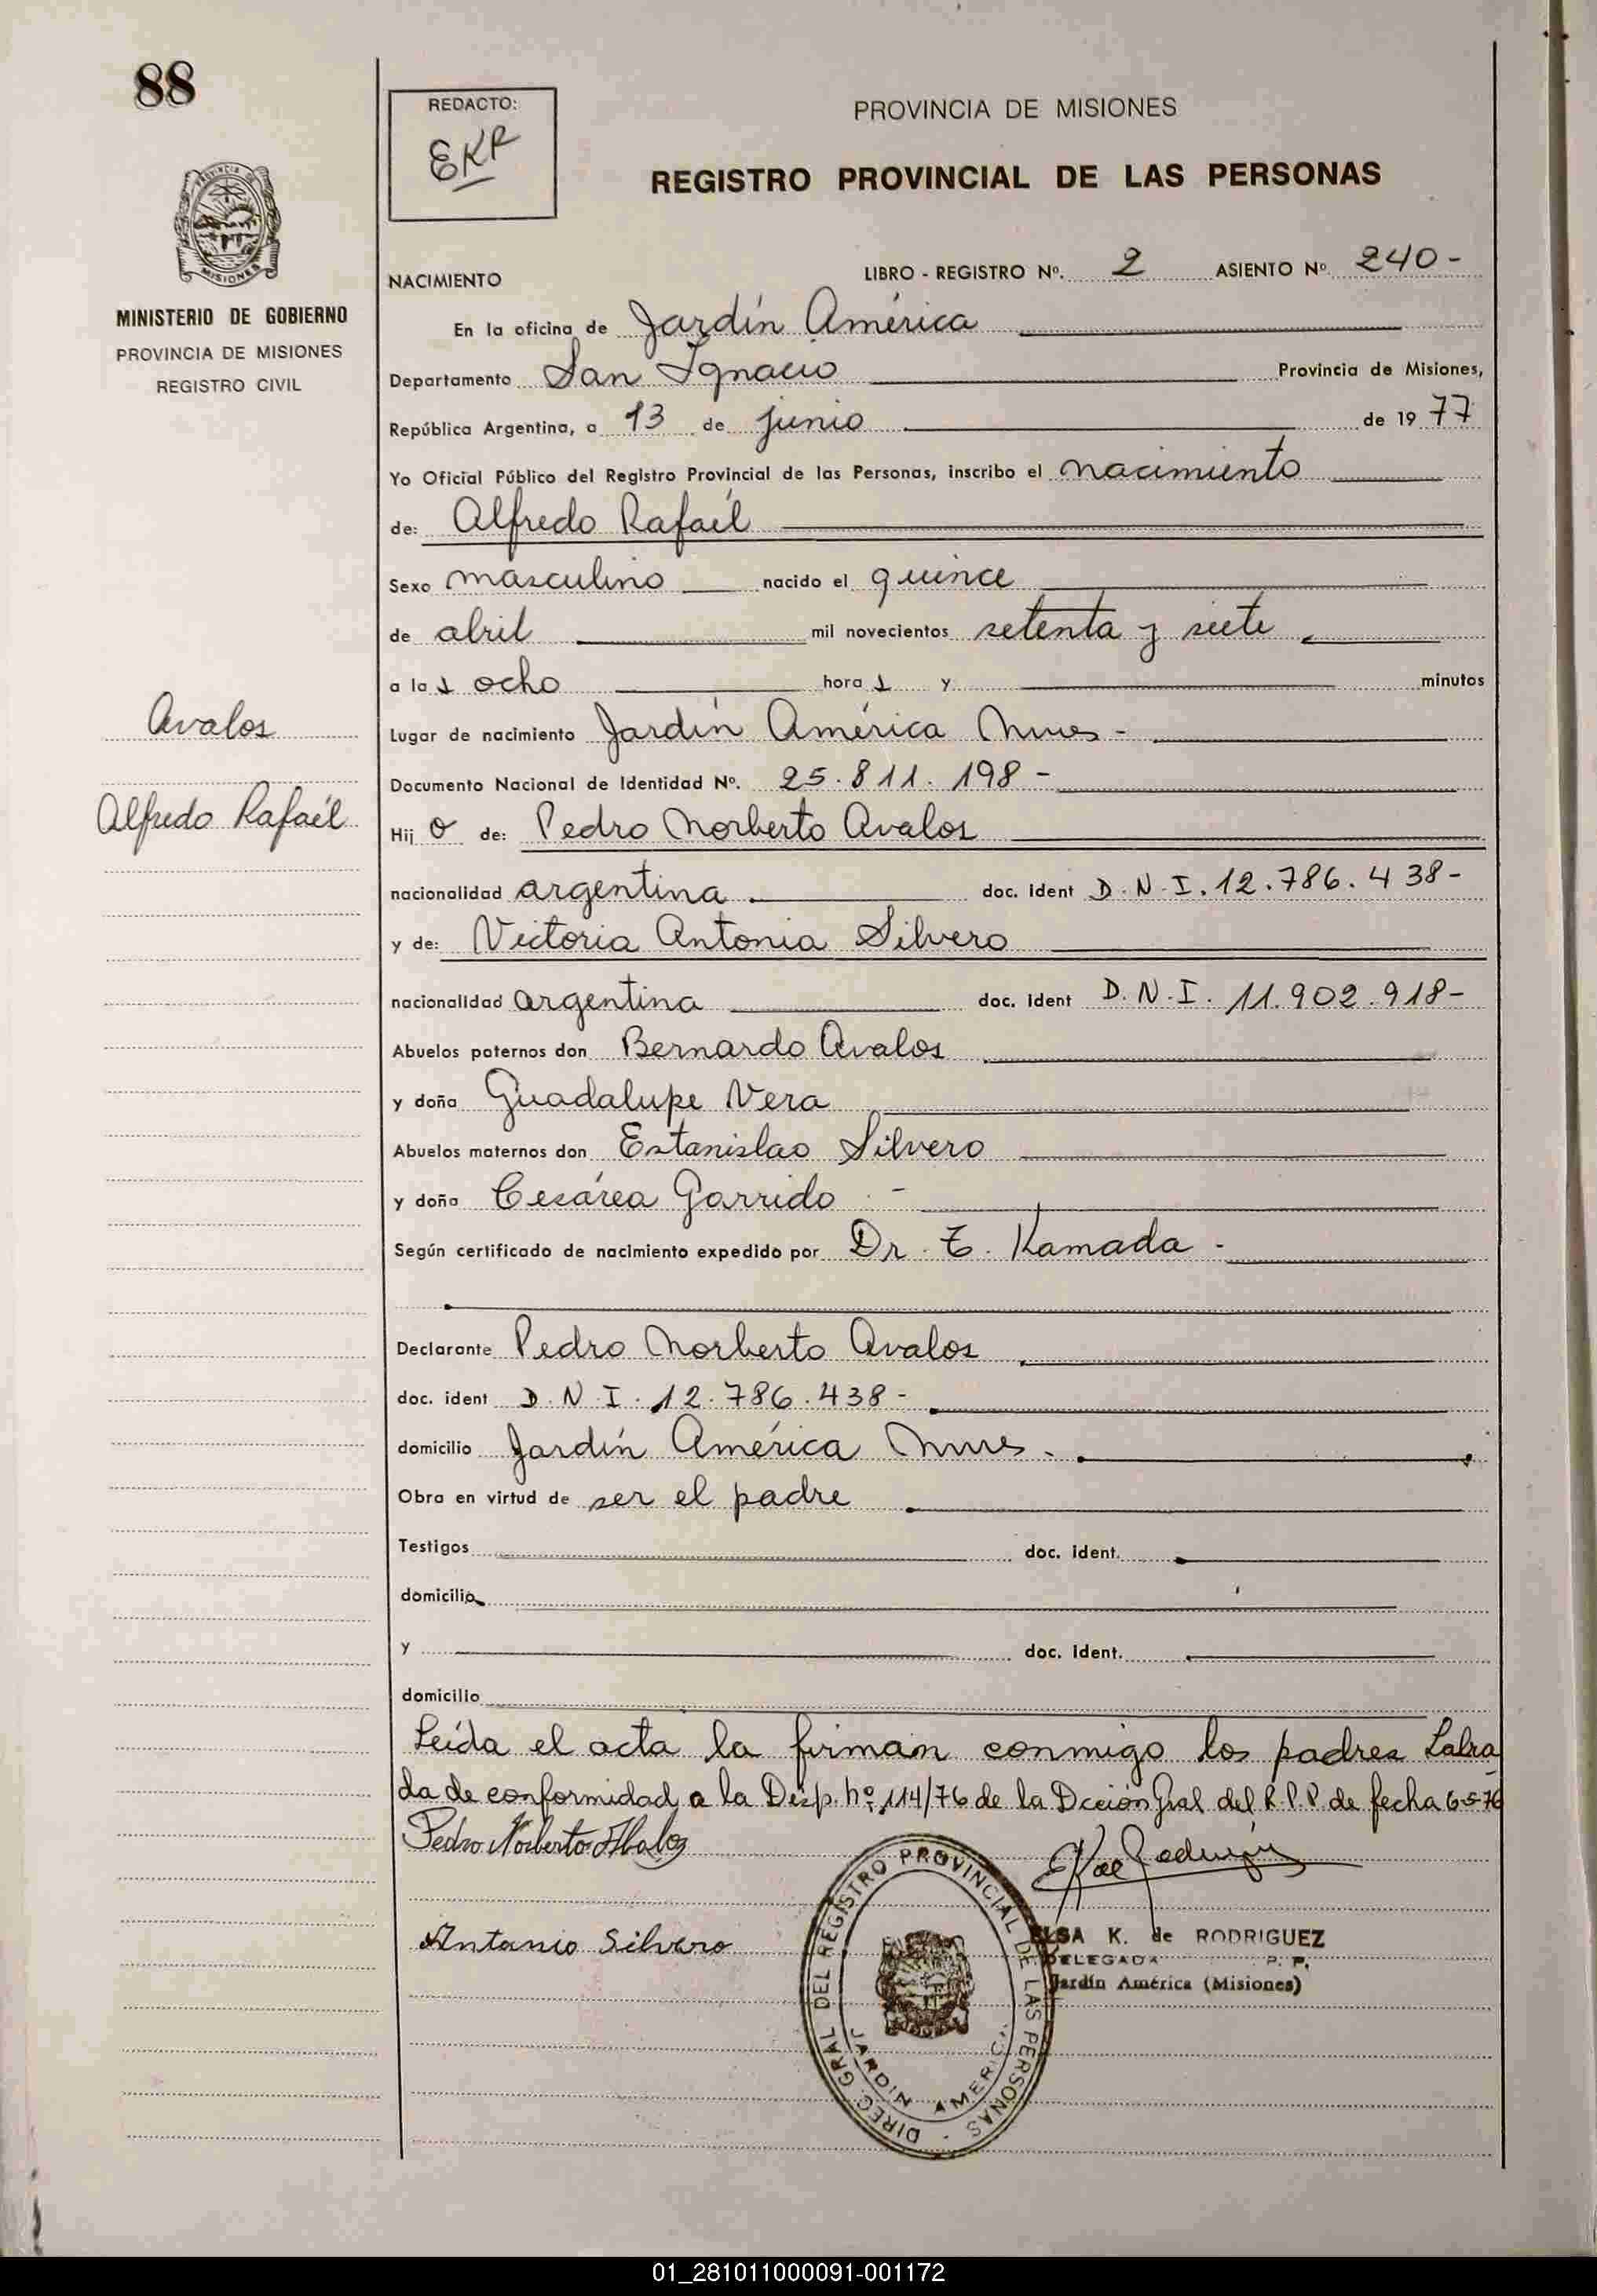 88
REDACTO:
EKR
PROVINCIA DE MISIONES
REGISTRO PROVINCIAL DE LAS PERSONAS
MISIONES
MINISTERIO DE GOBIERNO
PROVINCIA DE MISIONES
REGISTRO CIVIL
NACIMIENTO LIBRO - REGISTRO Nº. 2 ASIENTO Nº 240-
En la oficina de Jardín América
Departamento San Ignacio Provincia de Misiones,
República Argentina, a 13 de junio de 1977
Yo Oficial Público del Registro Provincial de las Personas, inscribo el nacimiento
de: Alfredo Rafaél
Sexo masculino nacido el quince
de abril mil novecientos setenta y siete
a la s ocho hora s y minutos
Avalos
Lugar de nacimiento Jardín América Mnes -
Documento Nacional de Identidad Nº. 25.811.198-
Alfredo Rafaél
Hij o de: Pedro Norberto Avalos
nacionalidad argentina doc. ident D.N.I. 12.786.438-
y de: Victoria Antonia Silvero
nacionalidad argentina doc. ident D.N.I. 11.902.918-
Abuelos paternos don Bernardo Avalos
y doña Guadalupe Vera
Abuelos maternos don Estanislao Silvero
y doña Cesárea Garrido -
Según certificado de nacimiento expedido por Dr. T. Kamada -
Declarante Pedro Norberto Avalos
doc. ident D.N.I. 12.786.438-
domicilio Jardín América Mnes.
Obra en virtud de ser el padre
Testigos doc. ident.
domicilio
y doc. ident.
domicilio
Leída el acta la firman conmigo los padres Labra
da de conformidad a la Disp. nº 114/76 de la Dcción Gral del R.P.P. de fecha 6-5-76
Pedro Norberto Abalos
Antonio Silvero
DIREC. GRAL DEL REGISTRO PROVINCIAL DE LAS PERSONAS -
JARDIN AMERICA
ELSA K. de RODRIGUEZ
DELEGADA P. P.
Jardín América (Misiones)
01_281011000091-001172